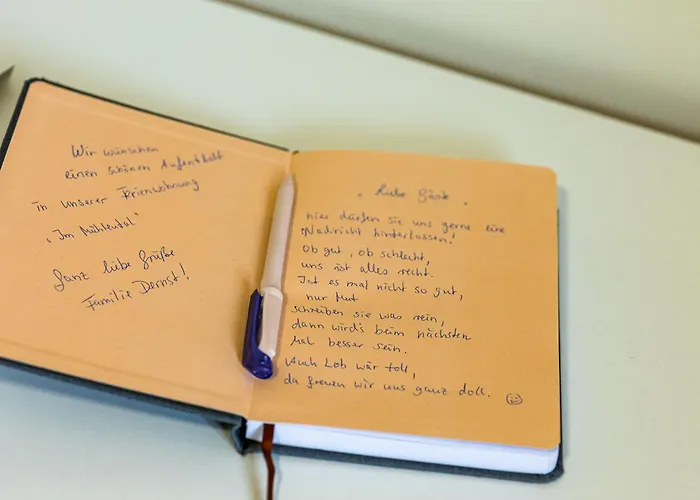 Wir wünschen
einen schönen Aufenthalt
in unserer Ferienwohnung
„Im Mühlental"
Ganz liebe Grüße
Familie Dernst!
Liebe Gäste
hier dürfen Sie uns gerne eine
Nachricht hinterlassen!
Ob gut, ob schlecht,
uns ist alles recht.
Ist es mal nicht so gut,
nur Mut
schreiben sie was rein,
dann wird's beim nächsten
Mal besser sein.
Auch Lob wär toll,
da freuen wir uns ganz doll. ☺